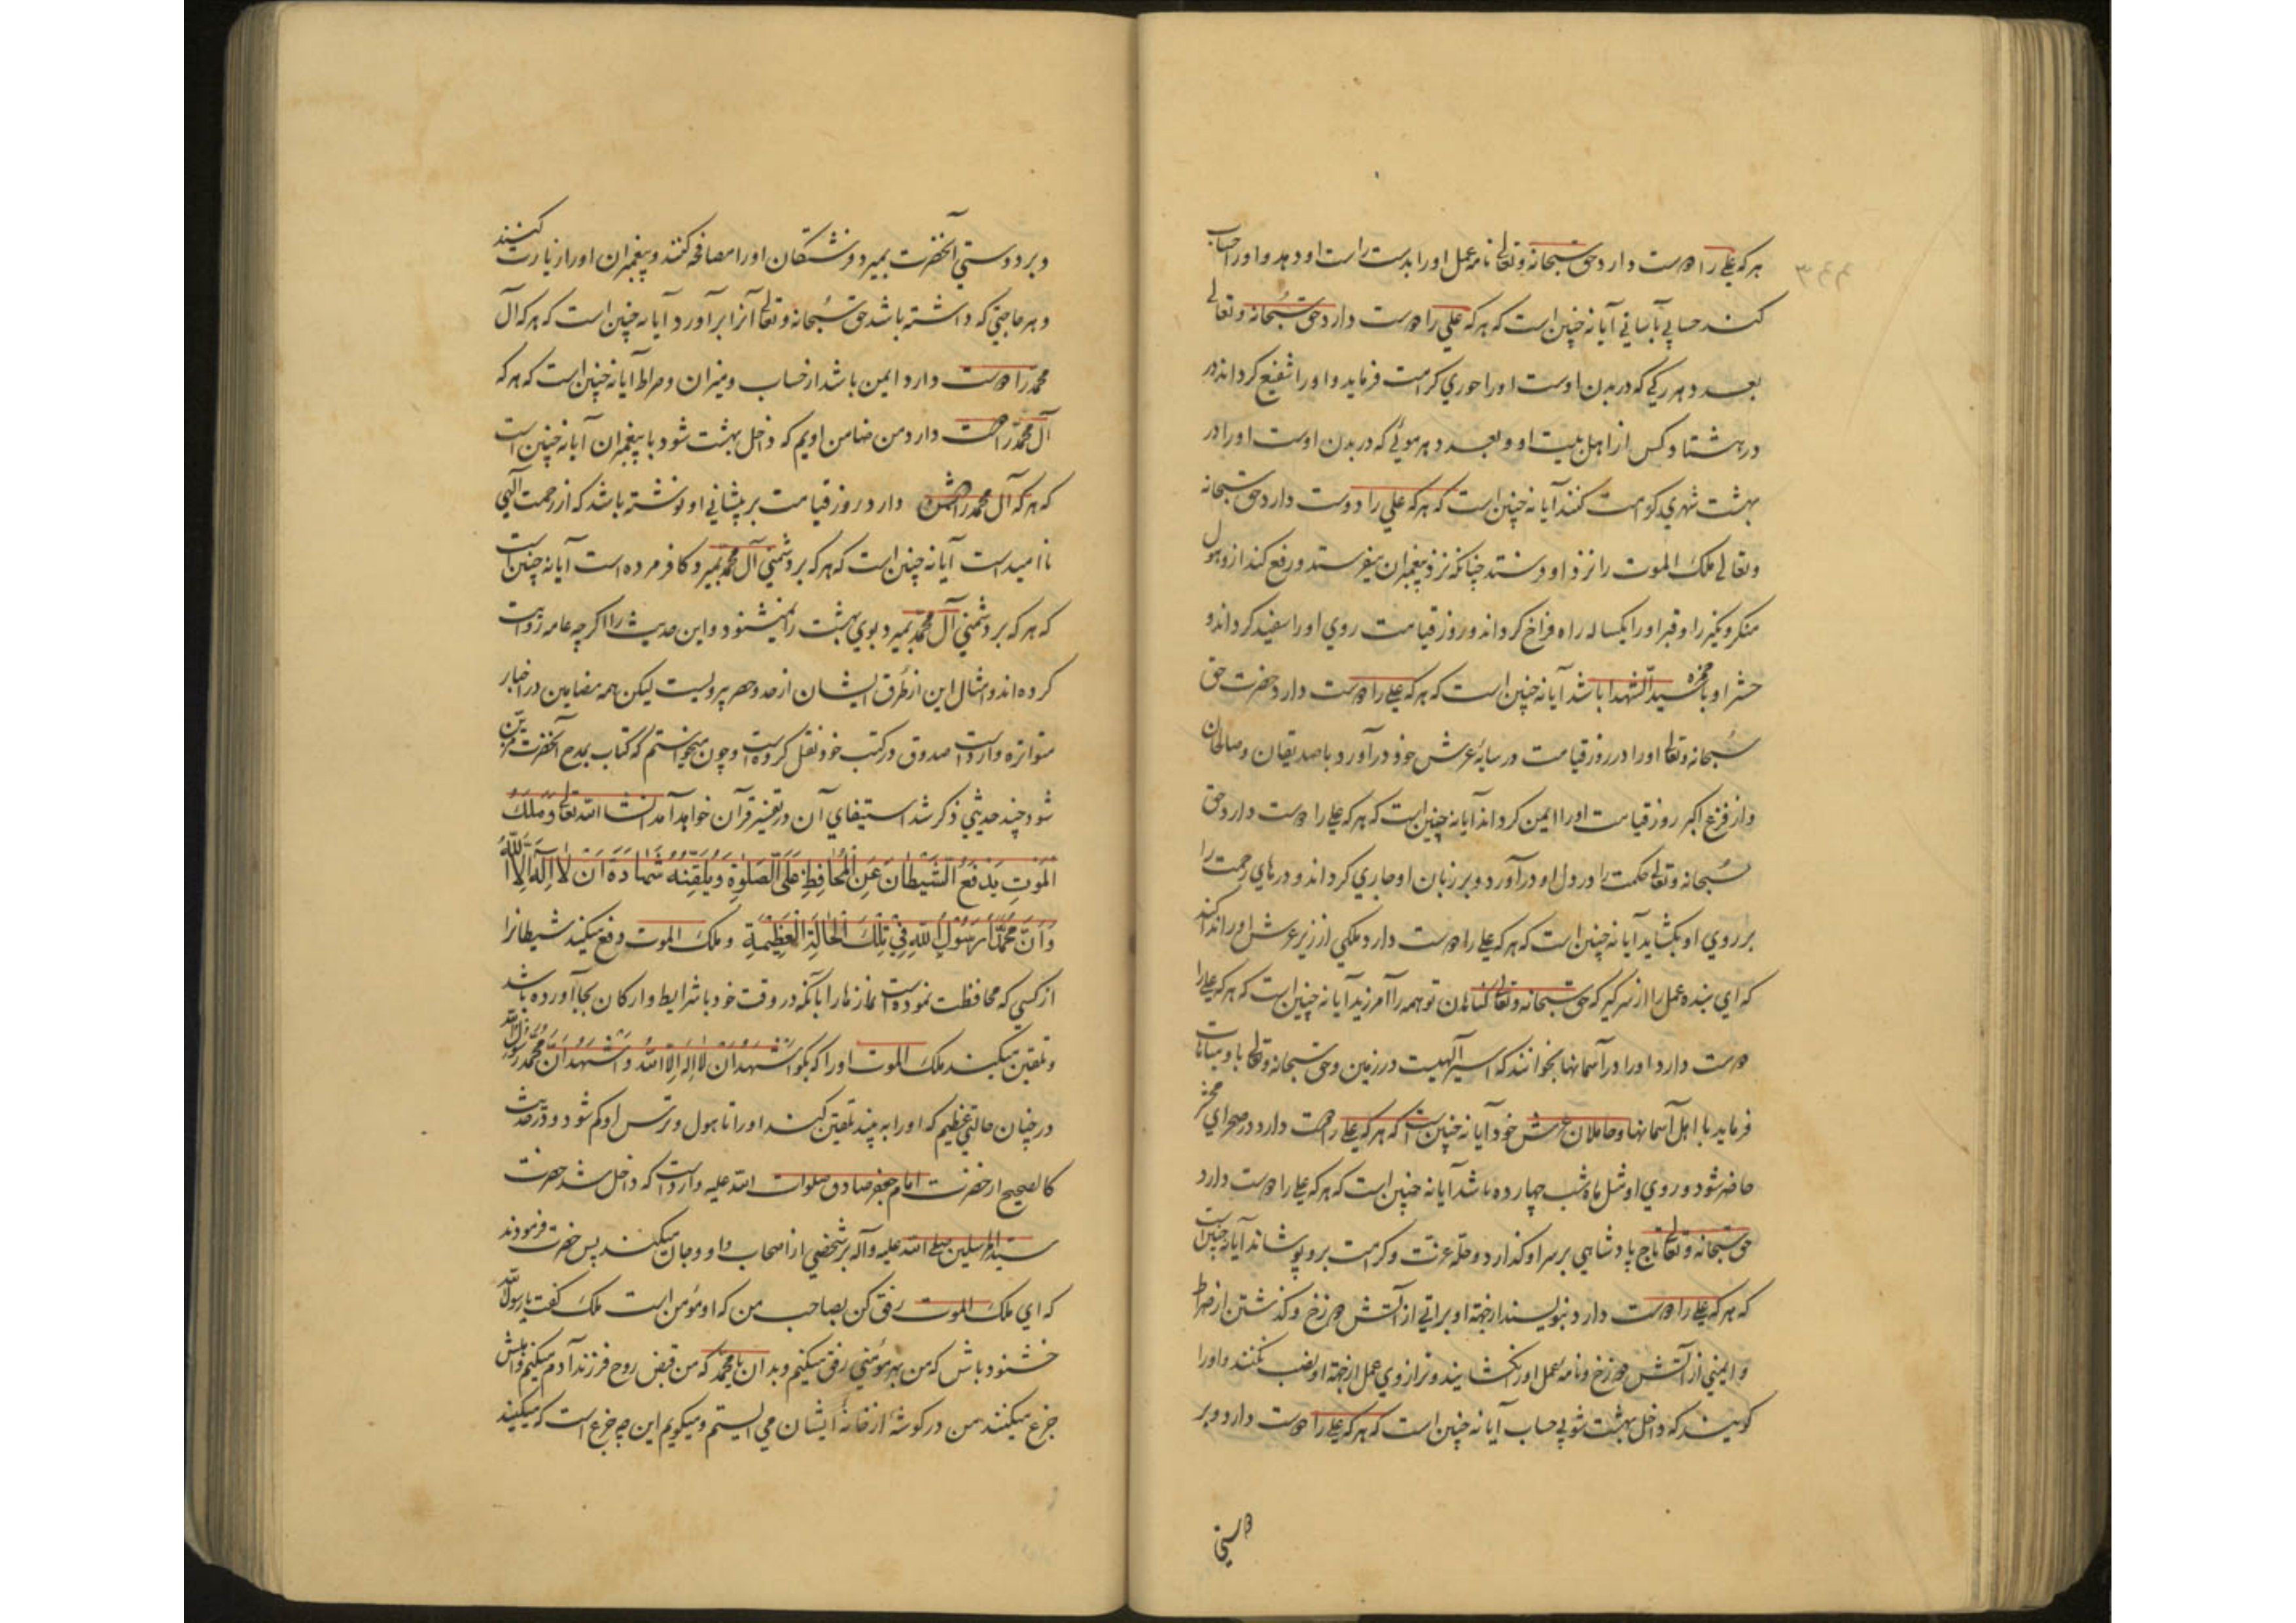 هر که علی را دوست دارد حق سبحانه و تعالی نامه عمل او را بدست راست او دهد و او را حساب
کنند حسابی بآسانی آیا نه چنین است که هر که علی را دوست دارد حق سبحانه و تعالی
بعدد هر رکی که در بدن اوست او را حوری کرامت فرماید و او را شفیع کرداند در
در هشتاد کس از اهل بیت او و بعدد هر موئی که در بدن اوست او را در
بهشت شهری کرامت کنند آیا نه چنین است که هر که علی را دوست دارد حق سبحانه
و تعالی ملک الموت را نزد او فرستد چنانکه نزد پیغمبران میفرستد و رفع کند ازو هول
منکر و نکیر را و قبر او را یکساله راه فراخ کرداند و روز قیامت روی او را سفید کرداند و
حشر او با حمزه سید الشهدا باشد آیا نه چنین است که هر که علی را دوست دارد حضرت حق
سبحانه و تعالی او را در روز قیامت در سایه عرش خود در آورد با صدیقان و صالحان
و از فزع اکبر روز قیامت او را ایمن کرداند آیا نه چنین است که هر که علی را دوست دارد حق
سبحانه و تعالی حکمت را در دل او در آورد و بر زبان او جاری کرداند و درهای رحمت را
بر روی او بکشاید آیا نه چنین است که هر که علی را دوست دارد ملکی از زیر عرش او را ندا کند
که ای بنده عمل را از سر کیر که حق سبحانه و تعالی کناهان تو همه را آمرزید آیا نه چنین است که هر که علی را
دوست دارد او را در آسمانها بخوانند که اسیر آلهیست در زمین و حق سبحانه و تعالی با او مباهات
فرماید با اهل آسمانها و حاملان عرش خود آیا نه چنین است که هر که علی را دوست دارد در صحرای محشر
حاضر شود و روی او مثل ماه شب چهارده باشد آیا نه چنین است که هر که علی را دوست دارد
حق سبحانه و تعالی تاج پادشاهی بر سر او کذارد و حله عزت و کرامت برو پوشاند آیا نه چنین است
که هر که علی را دوست دارد بنویسند از جهة او براتی از آتش دوزخ و کذشتن از صراط
و ایمنی از آتش دوزخ و نامه عمل او را نکشایند و ترازوی عمل از جهة او نصب نکنند و او را
کویند که داخل بهشت شو بی حساب آیا نه چنین است که هر که علی را دوست دارد و بر
دوستی
و بر دوستی آنحضرت بمیرد فرشتکان او را مصافحه کنند و پیغمبران او را زیارت کنند
و هر حاجتی که داشته باشد حق سبحانه و تعالی آنرا بر آورد آیا نه چنین است که هر که آل
محمد را دوست دارد ایمن باشد از حساب و میزان و صراط آیا نه چنین است که هر که
آل محمد را دوست دارد من ضامن اویم که داخل بهشت شود با پیغمبران آیا نه چنین است
که هر که آل محمد را دشمن دارد روز قیامت بر پیشانی او نوشته باشد که از رحمت آلهی
نا امید است آیا نه چنین است که هر که بر دشمنی آل محمد بمیرد کافر مرده است آیا نه چنین است
که هر که بر دشمنی آل محمد بمیرد بوی بهشت را نمیشنود و این حدیث را اکرچه عامه روایت
کرده اند و امثال این از طرق ایشان از حد و حصر بیرونست لیکن همه مضامین در اخبار
متواتره وارد است صدوق در کتب خود نقل کرده است و چون میخواستم که کتاب بمدح آنحضرت مزین
شود چند حدیثی ذکر شد استیفای آن در تفسیر قرآن خواهد آمد انشاء الله تعالی وَمَلَكُ
المَوْتِ يَدْفَعُ الشَّيْطَانَ عَنِ الْمُحَافِظِ عَلَى الصَّلَوٰةِ وَيُلَقِّنُهُ شَهَادَةَ اَنْ لَا اِلَهَ اِلَّا اللهُ
وَاَنَّ مُحَمَّدًا رَسُولُ اللهِ فِي تِلْكَ الْحَالَةِ الْعَظِيمَةِ و ملک الموت دفع میکند شیطانرا
از کسی که محافظت نموده است نمازها را بآنکه در وقت خود با شرایط و ارکان بجا آورده باشد
و تلقین میکند ملک الموت او را که بکو اَشْهَدُ اَنْ لَا اِلَهَ اِلَّا اللهُ وَ اَشْهَدُ اَنَّ مُحَمَّدًا رَسُولُ اللهِ
در چنان حالتی عظیم که او را به بیند تلقین کند او را تا هول و ترس او کم شود و در حدیث
کالصحیح از حضرت امام جعفر صادق صلوات الله علیه وارد است که داخل شد حضرت
سید المرسلین صلی الله علیه و آله بر شخصی از اصحاب و او جان میکند پس حضرت فرمودند
که ای ملک الموت رفق کن بصاحب من که او مؤمن است ملک کفت یا رسول الله
خشنود باش که من بهر مؤمنی رفق میکنم و بدان یا محمد که من قبض روح فرزند آدم میکنم و اهلش
جزع میکنند من در کوشه از خانه ایشان می ایستم و میکویم این چه جزع است که میکنید